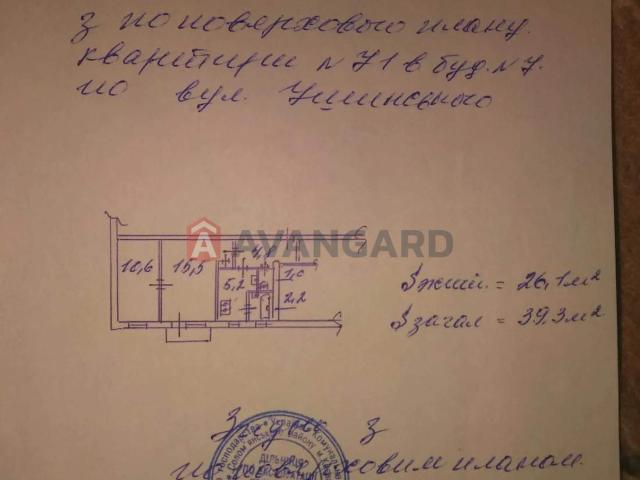 з поповерхового плану.
квартири №71 в буд. №7.
по вул. Ушинського
AVANGARD
10,6 15,5 5,2 1,0 2,2
Sжит. = 26,1 м²
Sзагал = 39.3 м²
Згідно з
поповерховим планом.